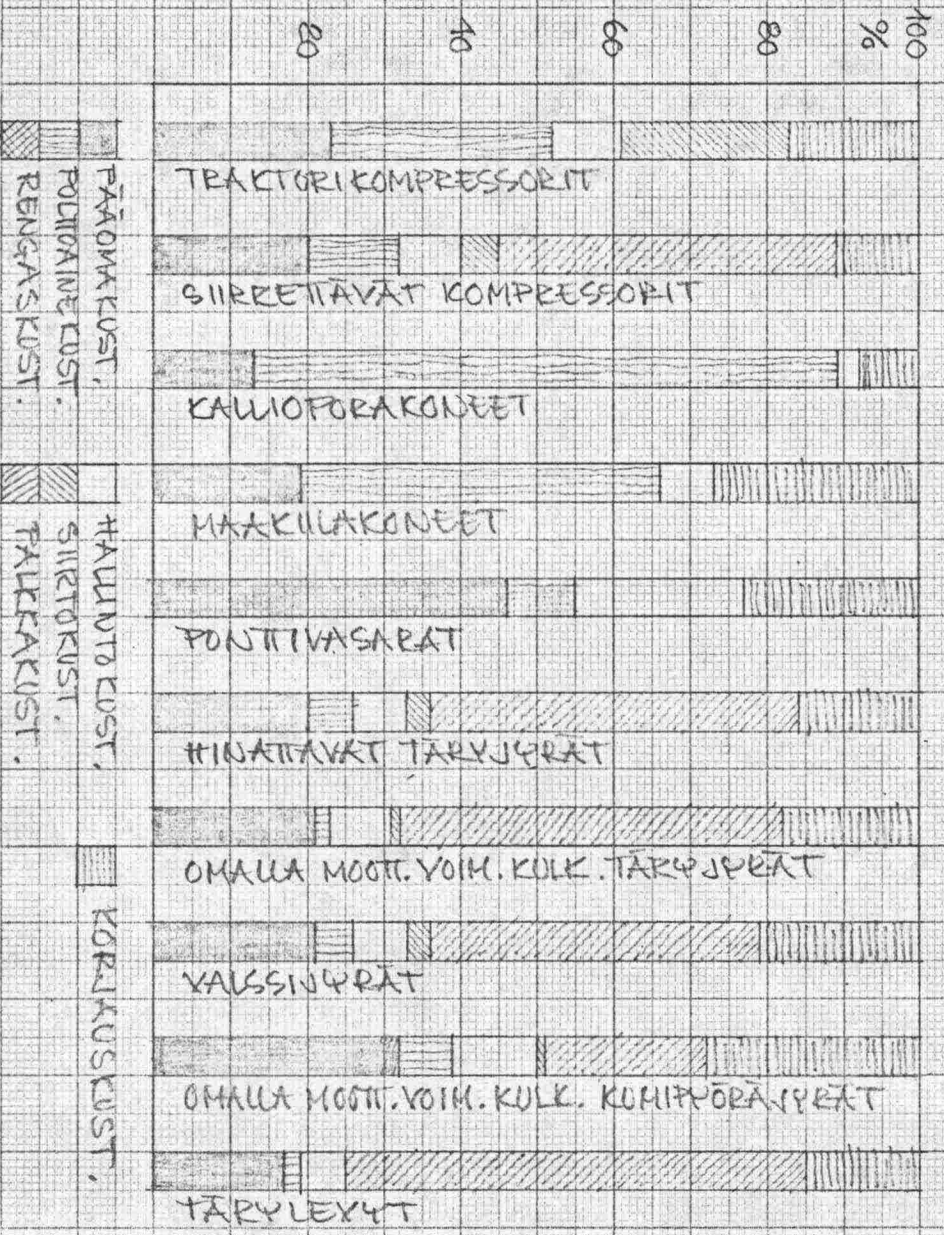 20 40 60 80 % 100
TRAKTORIKOMPRESSORIT
SIIRRETTÄVÄT KOMPRESSORIT
KALLIOPORAKONEET
MAAKIILAKONEET
PONTTIVASARAT
HINATTAVAT TÄRYJYRÄT
OMALLA MOOTT.VOIM.KULK.TÄRYJYRÄT
VALSSIJYRÄT
OMALLA MOOTT.VOIM.KULK. KUMIPYÖRÄJYRÄT
TÄRYLEVYT
PÄÄOMAKUST.
POLTTOAINEKUST.
RENGASKUST.
HALLINTOKUST.
SIIRTOKUST.
PALKKAKUST.
KORJAUSKUST.